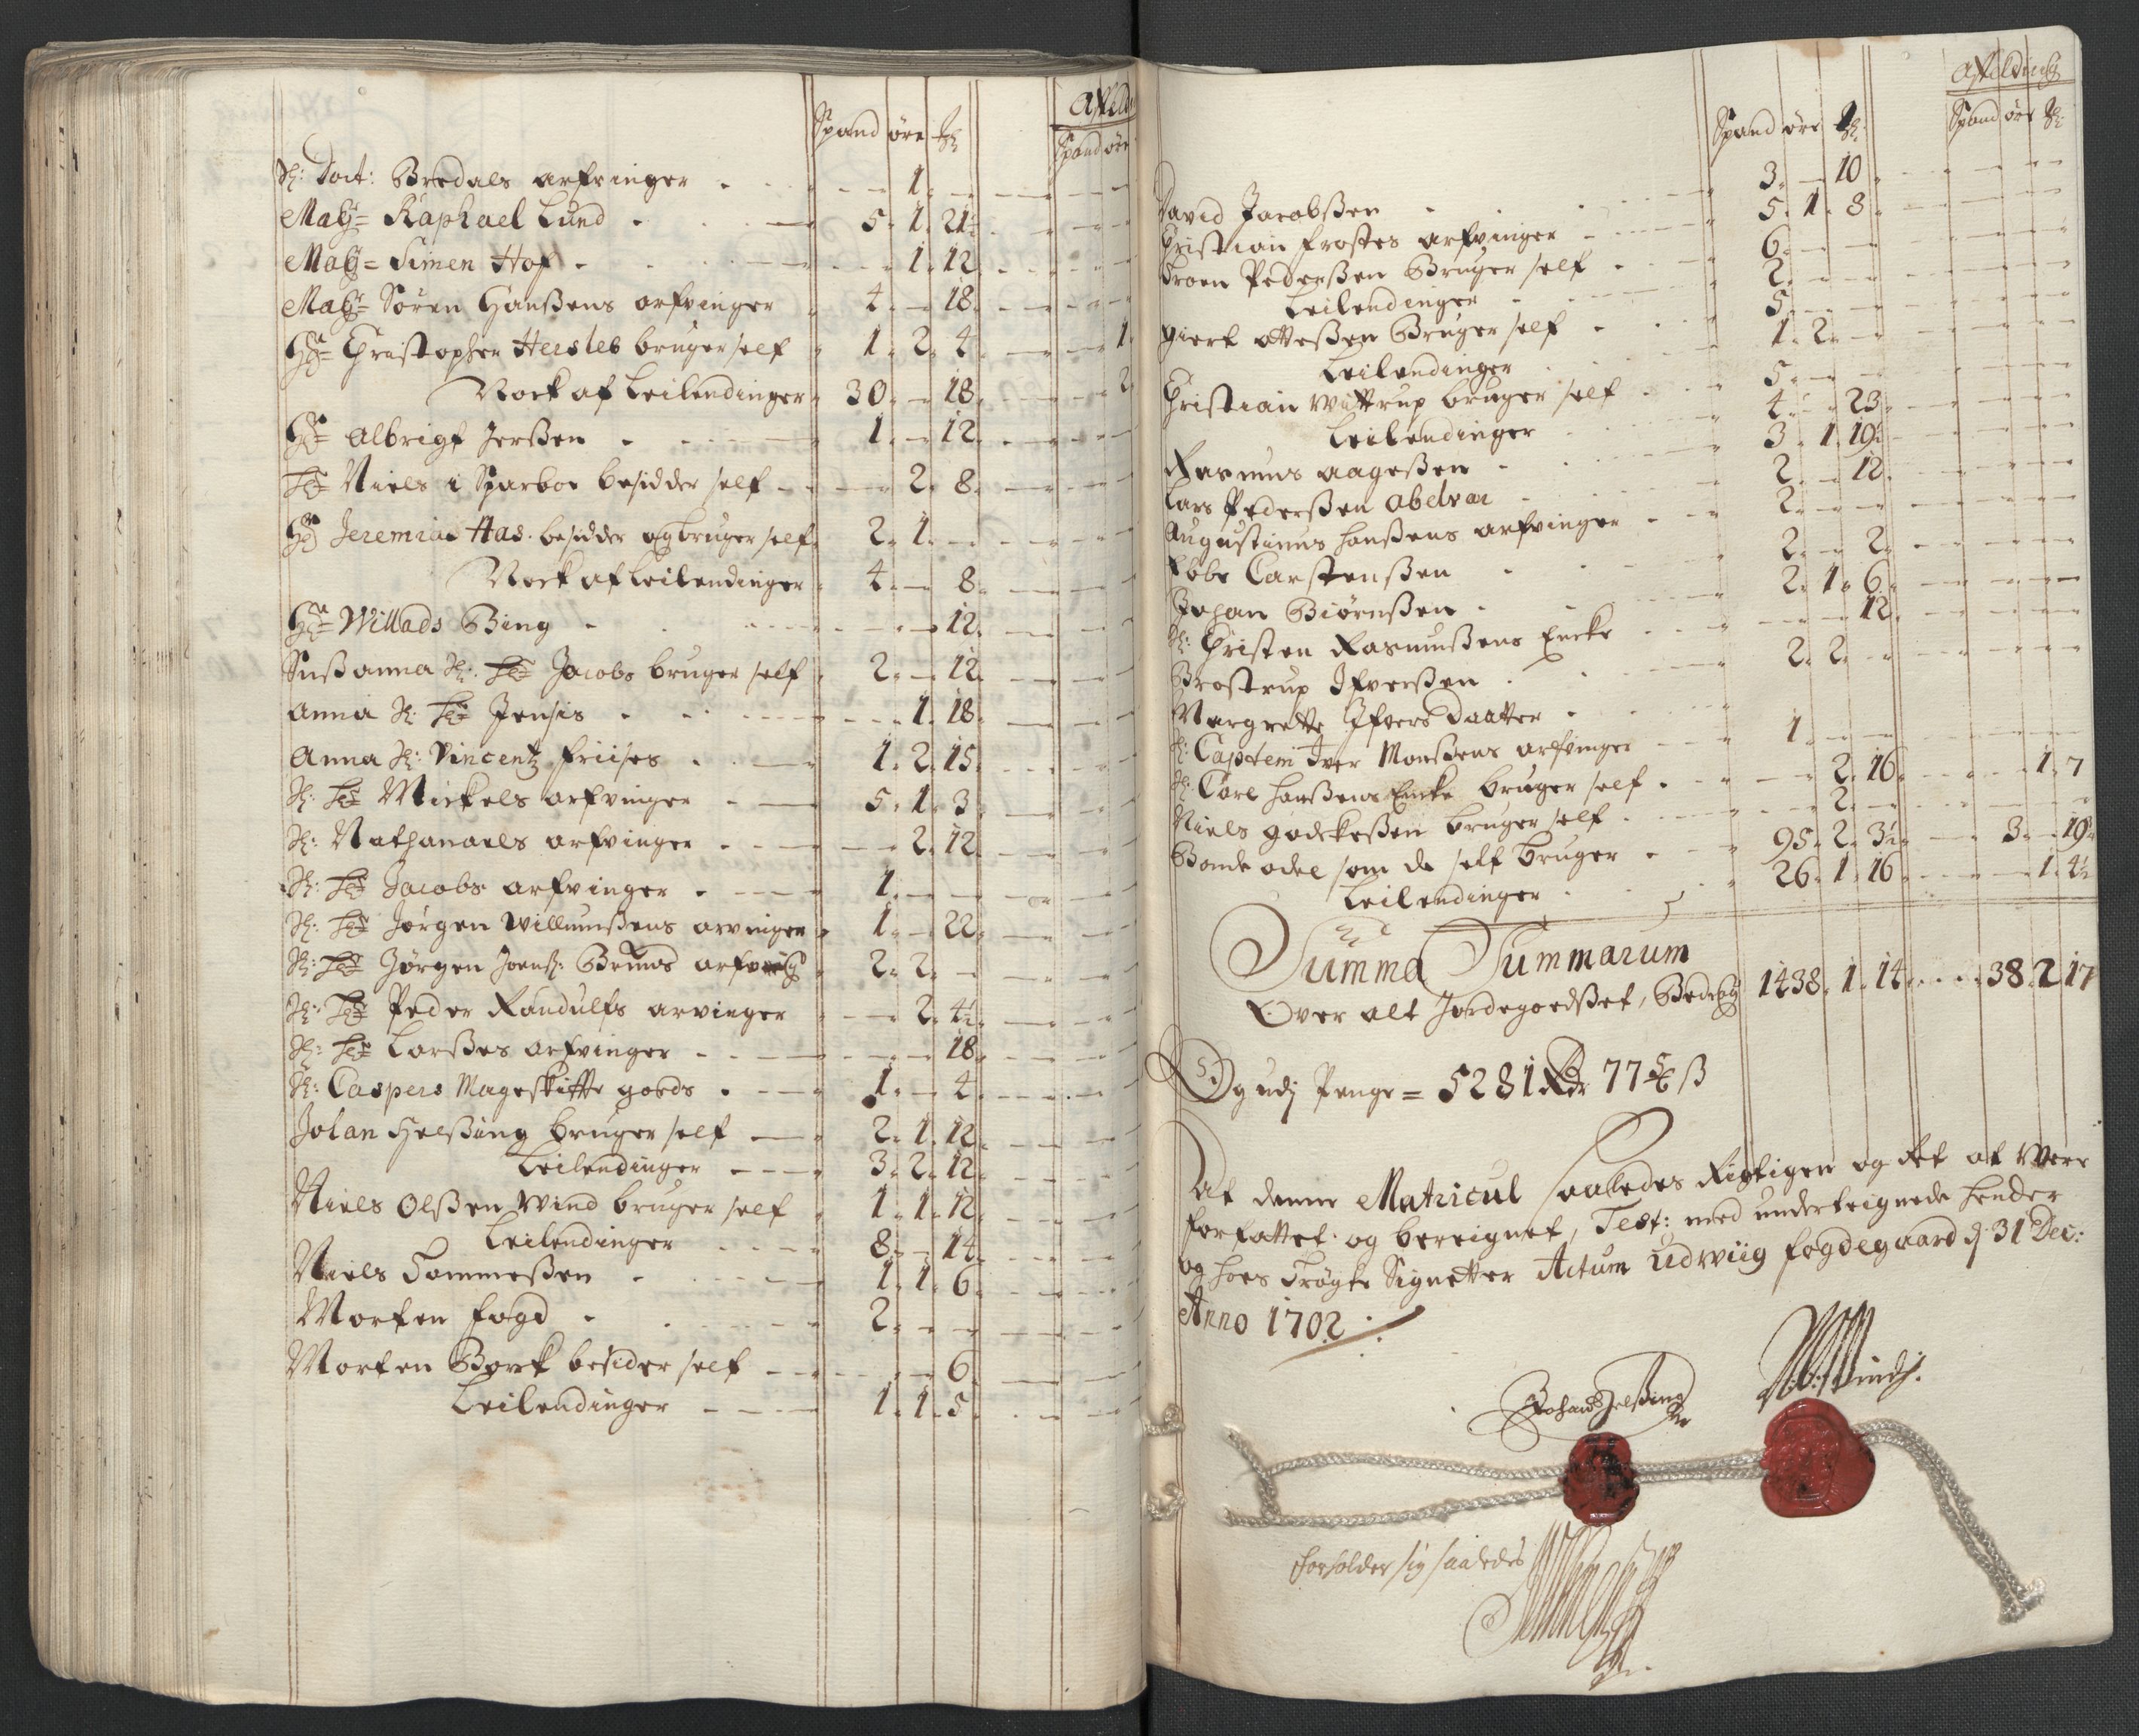 Spand øre
Afeld
Spand øre
Sl: Doct: Bredals arfvinger 1
Magr= Raphael Lund 5. 1. 21½
Magr= Simen Hof 1. 12
Magr= Søren Hanßens arfvinger 4. 18
Hr= Christopher Hersleb bruger self 1. 2. 4 1
Nock af Leilendinger 30. 18 2
Hr= Albrigt Jerßen 1. 12
Hr= Niels i Sparboe besidder self 2. 8
Hr Jeremias Has. besidder og bruger self 2. 1
Nock af Leilendinger 4. 8
Hr= Willads Bing 12
Sußanna Sl: Hr= Jacobs bruger self 2. 12
Anna Sl: Hr= Jensis 1. 18
Anna Sl: Vincentz Friises 1. 2. 15
Sl: Hr= Mickels arfvinger 5. 1. 3
Sl: Nathanaels arfvinger 2. 12
Sl: Hr= Jacobs arfvinger 1
Sl: Hr= Jørgen Willumßens arvinger 1. 22
Sl: Hr= Jørgen Joensß: Bruns arfving 2. 2
Sl: Hr= Peder Randulfs arvinger 2. 4½
Sl: Hr= Larßes arfvinger 18
Sl: Caspers Mageskiffte goeds 1. 4
Johan Helßing bruger self 2. 1. 12
Leilendinger 3. 2. 12
Niels Olßen Wind bruger self 1. 1. 12
Leilendinger 8. 14
Niels Tommeßen 1. 1. 6
Morten fogd 2
Morten Borck besider self 6
Leilendinger 1. 1. 5
Afelding
Spand øre
Spand øre
David Jacobßen 3. 10
Christian Frostes arfvinger 5. 1. 8
Troen Pederßen Bruger self 6
Leilendinger 2
otteßen Bruger self 5
Leilendinger 1. 2
Christian Wittrup bruger self 5
Leilendinger 4. 23
Rasmus Aageßen 3. 1. 19½
Lars Pederßen Abelvær 2. 12
Augustinus Hanßens arfvinger 2
Ebbe Carstenßen 2. 2
Johan Biørnßen 2. 1. 6
Sl: Christen Rasmußens Encke 12
Brostrup Ifverßen 2. 2
Margrette Ifversdaatter
Sl: Captein Iver Monßens arfvinger 1
Sl: Carl Hanßens Encke bruger self 2. 16 1. 7
Niels Godskeßen bruger self 2
Bonde odel som de self bruger 95. 2. 3½ 3. 19½
Leilendinger 26. 1. 16 1. 4½
Summa Summarum
Over alt Jordegoedßet, 1438. 1. 14 38. 2. 17
Og udj Penge = 5281 Rdr 77 ß
At denne Matricul saaledes Rigtigen og Ret at Were
forfattet og bereignet, Test: med underteignede hender
og hoes trøgte Signetter Actum Udwiig fogdegaard d. 31 Dec:
Anno 1702
Johan Helßing
N. Wind
Forholder sig saaledes